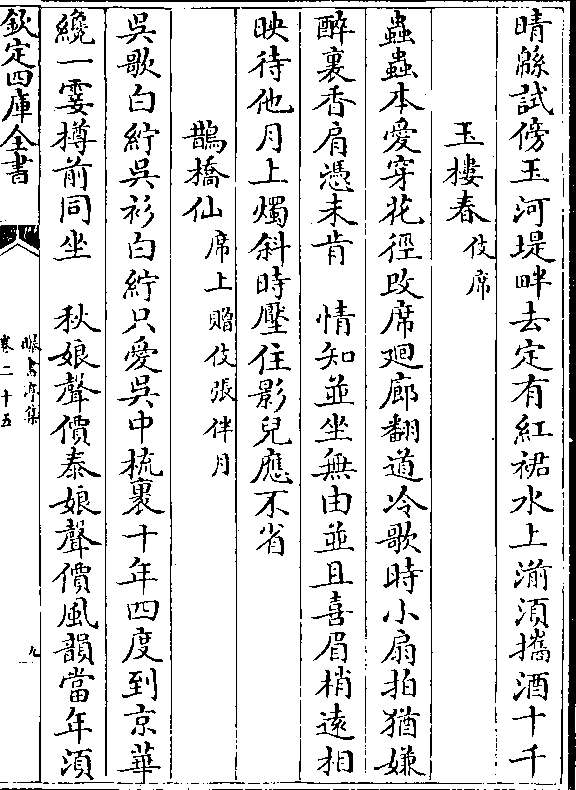 晴緜試傍玉河堤畔去定有紅裙水上湔須攜酒十千
玉樓春伎席
蟲蟲本愛穿花徑改席廻廊翻道冷歌時小扇拍猶嫌
醉裏香肩憑未肯　情知並坐無由並且喜眉梢遠相
映待他月上燭斜時壓住影兒應不省
鵲橋仙席上贈伎張伴月
吳歌白紵吳衫白紵只愛吳中梳裹十年四度到京華
纔一霎樽前同坐　秋娘聲價泰娘聲價風韻當年須
欽定四庫全書
曝書亭集
卷二十五
九